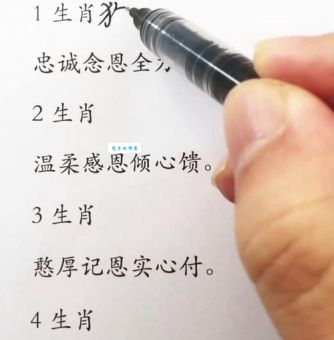 1 生肖
忠诚念恩全
2 生肖
温柔感恩倾心馈。
3 生肖
憨厚记恩实心付。
4 生肖